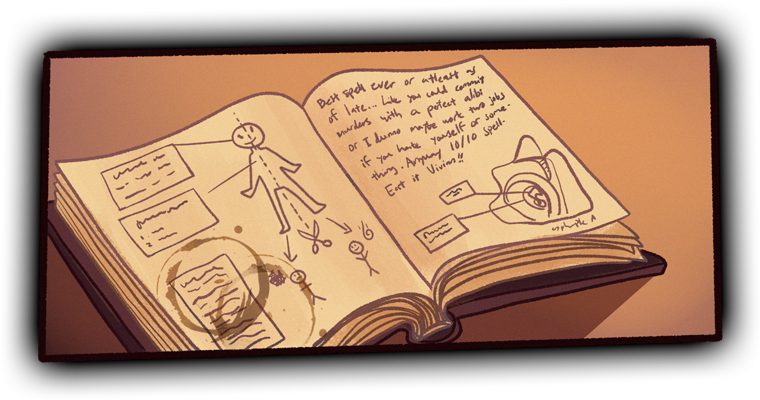 Best spell ever or atleast as
of late... Like you could commit
murders with a potect alibi
or I dunno maybe work two jobs
if you hate yourself or some-
thing. Anyway 10/10 spell.
Eat it Vivim!!
A